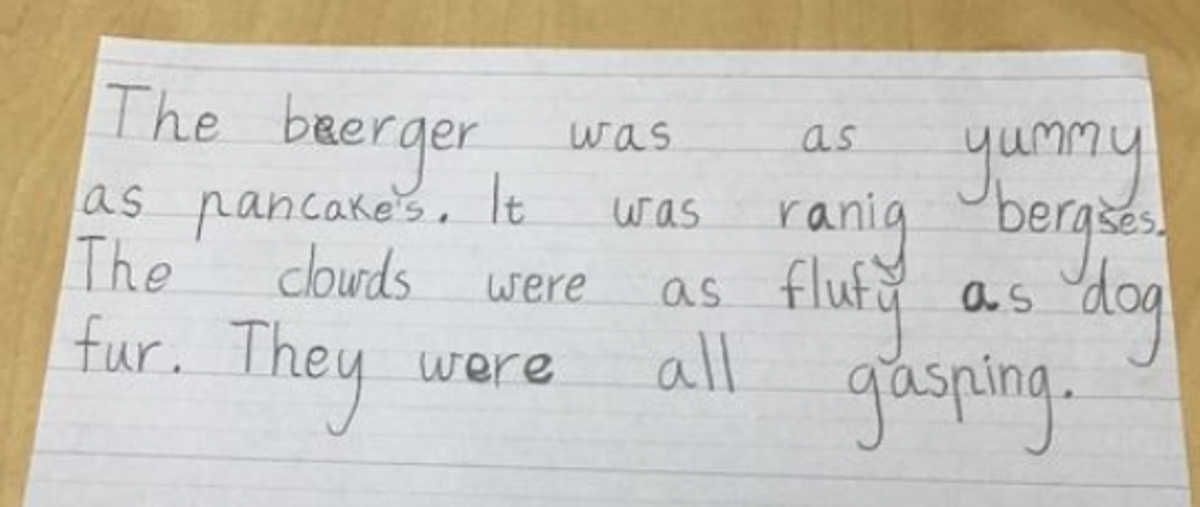 The beerger was as yummy
as pancakes. It was ranig bergses.
The clowds were as flufy as dog
fur. They were all gasping.